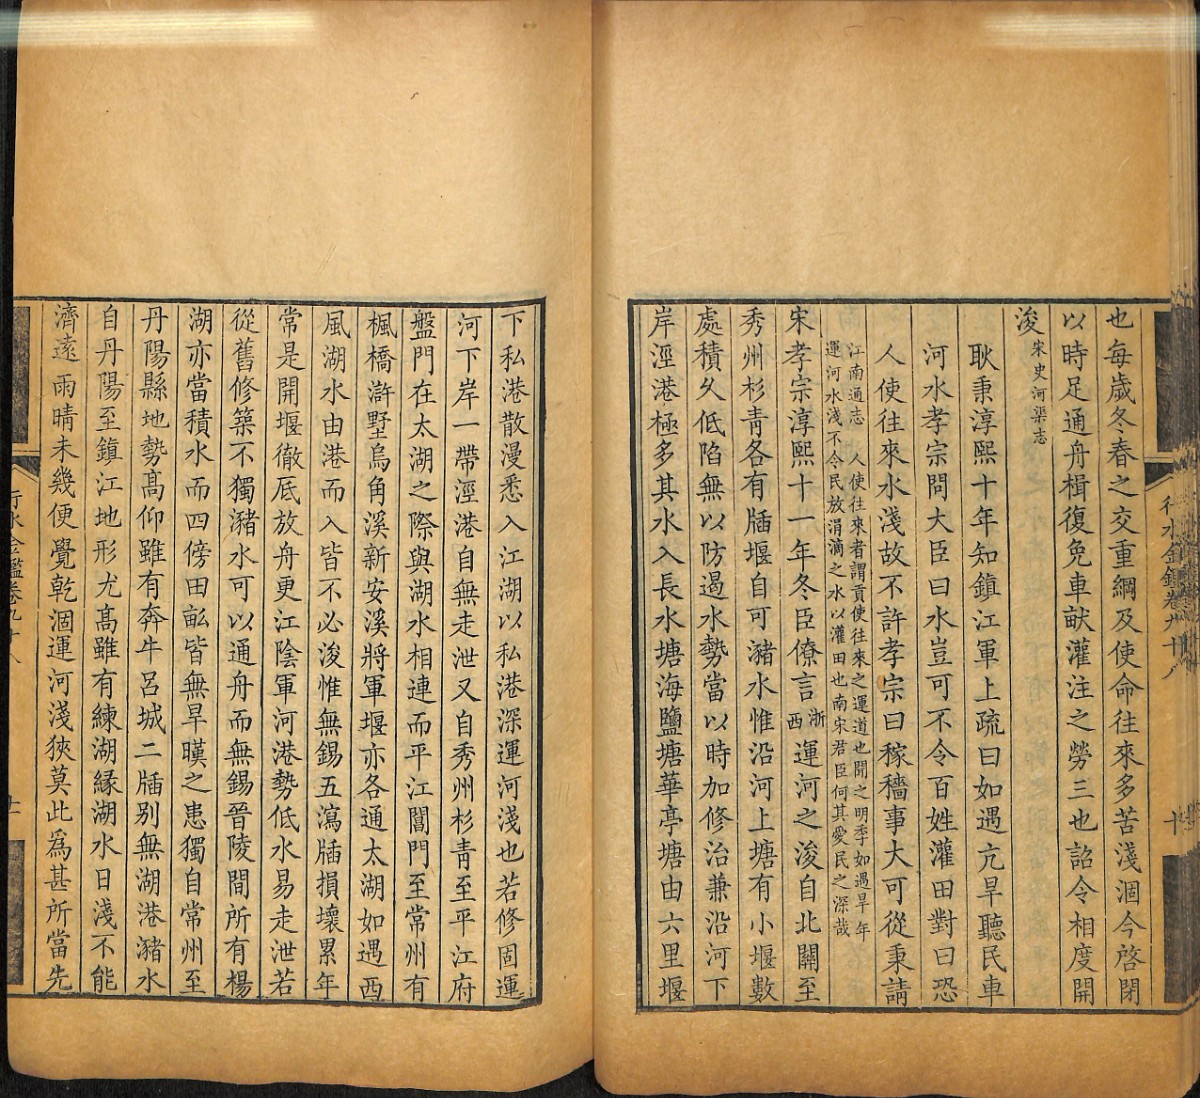 也每歲冬春之交重綱及使命往來多苦淺涸今啓閉
以時足通舟楫復免車畎灌注之勞三也詔令相度開
浚宋史河渠志
耿秉淳熙十年知鎮江軍上疏曰如遇亢旱聽民車
河水孝宗問大臣曰水豈可不令百姓灌田對曰恐
人使往來水淺故不許孝宗曰稼穡事大可從秉請
江南通志 人使往來者謂貢使往來之運道也聞之明季如遇旱年
運河水淺不令民放涓滴之水以灌田也南宋君臣何其愛民之深哉
宋孝宗淳熙十一年冬臣僚言浙西運河之浚自北關至
秀州杉青各有牐堰自可瀦水惟沿河上塘有小堰數
處積久低陷無以防遏水勢當以時加修治兼沿河下
岸涇港極多其水入長水塘海鹽塘華亭塘由六里堰
行水金鑑卷九十八
十
下私港散漫悉入江湖以私港深運河淺也若修固運
河下岸一帶涇港自無走泄又自秀州杉青至平江府
盤門在太湖之際與湖水相連而平江閶門至常州有
楓橋滸墅烏角溪新安溪將軍堰亦各通太湖如遇西
風湖水由港而入皆不必浚惟無錫五瀉牐損壞累年
常是開堰徹底放舟更江陰軍河港勢低水易走泄若
從舊修築不獨瀦水可以通舟而無錫晉陵間所有楊
湖亦當積水而四傍田畝皆無旱暵之患獨自常州至
丹陽縣地勢高仰雖有奔牛呂城二牐別無湖港瀦水
自丹陽至鎮江地形尤高雖有練湖緣湖水日淺不能
濟遠雨晴未幾便覺乾涸運河淺狹莫此爲甚所當先
行水金鑑卷九十八
十一